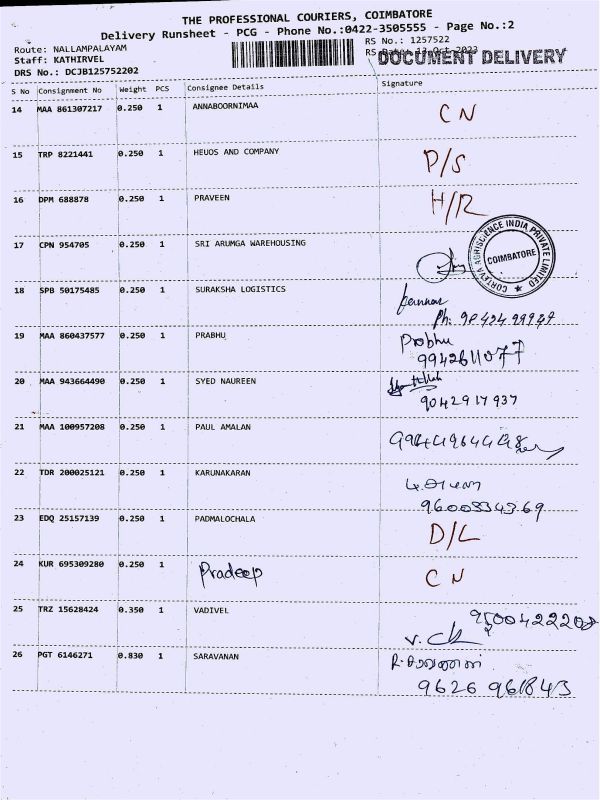 THE PROFESSIONAL COURIERS, COIMBATORE
Delivery Runsheet - PCG - Phone No.:0422-3505555 - Page No.:2
Route: NALLAMPALAYAM RS No.: 1257522
Staff: KATHIRVEL RS Date: 13 Oct 2023
DOCUMENT DELIVERY
DRS No.: DCJB125752202
S No Consignment No Weight PCS Consignee Details Signature
14 MAA 861307217 0.250 1 ANNABOORNIMAA CN
15 TRP 8221441 0.250 1 HEUOS AND COMPANY P/S
16 DPM 688878 0.250 1 PRAVEEN H/R
17 CPN 954705 0.250 1 SRI ARUMGA WAREHOUSING
CORTEVA AGRISCIENCE INDIA PRIVATE LIMITED
COIMBATORE
18 SPB 50175485 0.250 1 SURAKSHA LOGISTICS
Ph:
19 MAA 860437577 0.250 1 PRABHU Prabhu
9942611077
20 MAA 943664490 0.250 1 SYED NAUREEN
9042917937
21 MAA 100957208 0.250 1 PAUL AMALAN
22 TDR 200025121 0.250 1 KARUNAKARAN
9600834369
23 EDQ 25157139 0.250 1 PADMALOCHALA D/L
24 KUR 695309280 0.250 1 Pradeep CN
25 TRZ 15628424 0.350 1 VADIVEL
26 PGT 6146271 0.830 1 SARAVANAN
9626 961843